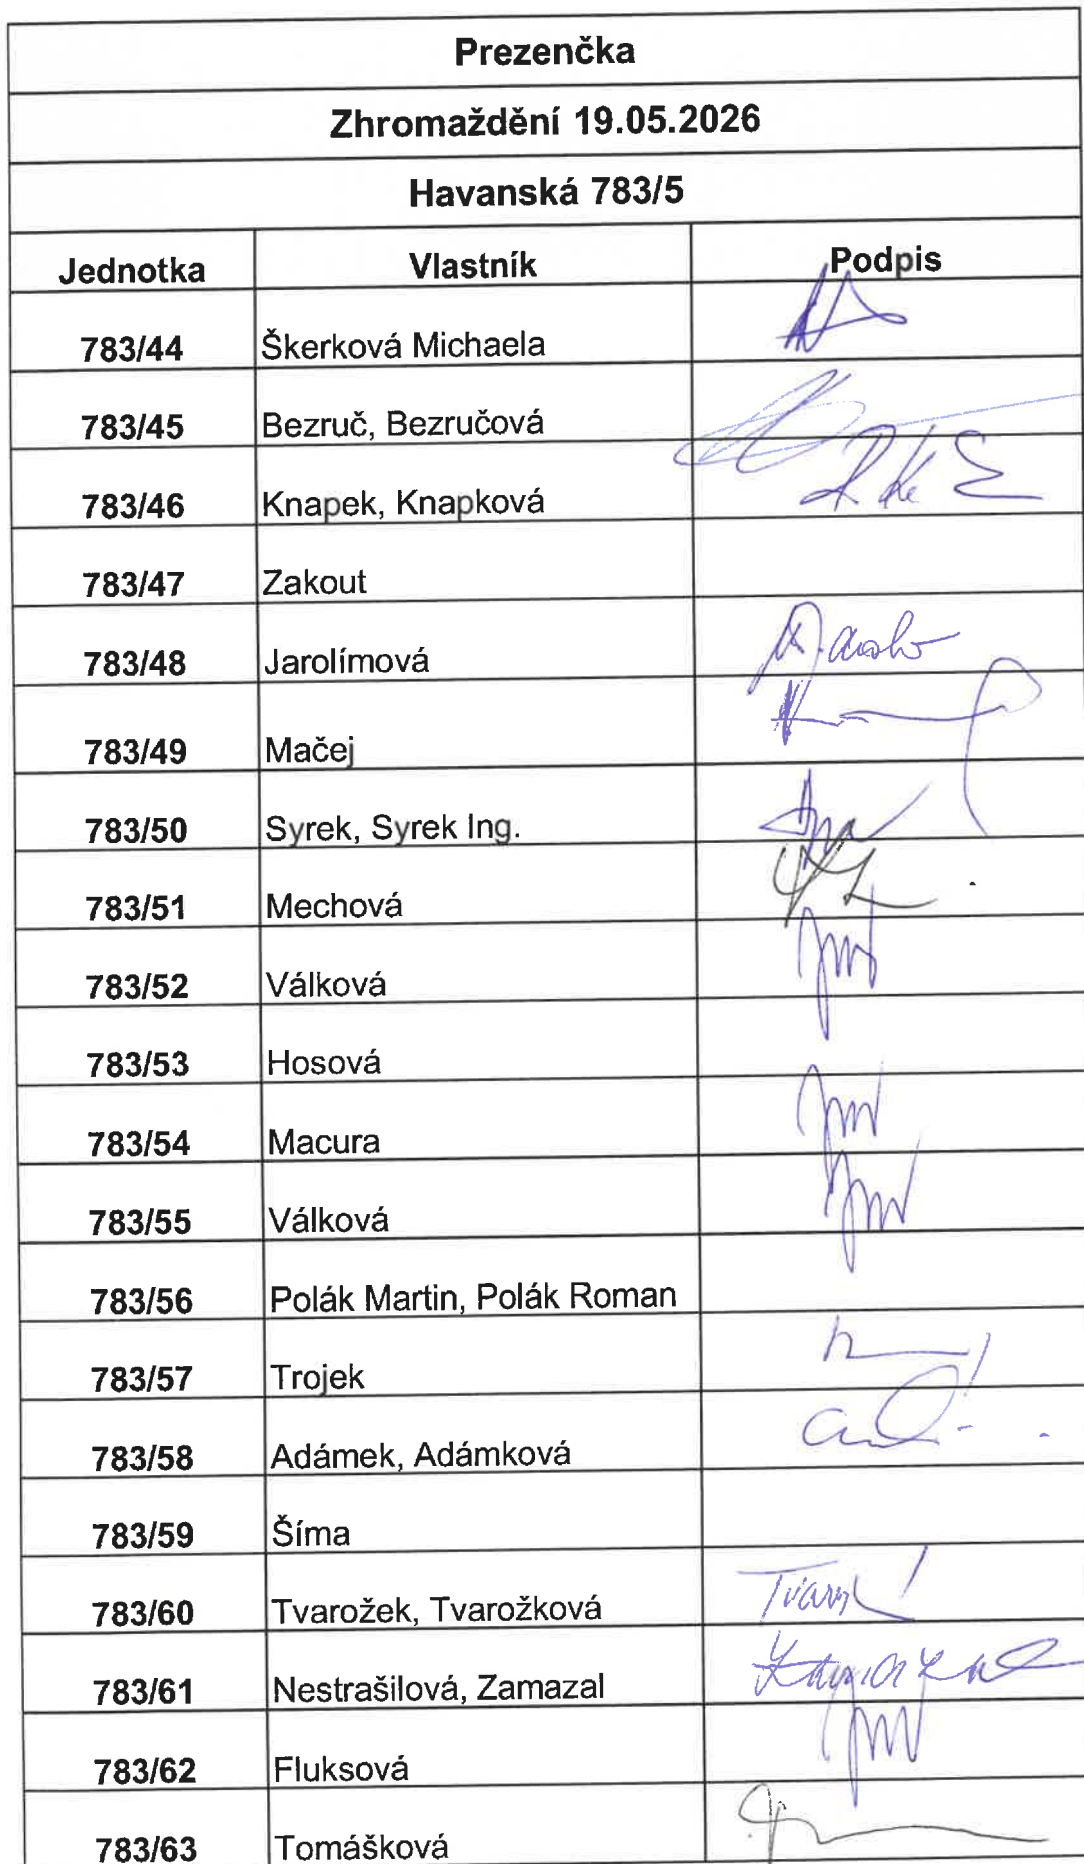 Prezenčka
Zhromaždění 19.05.2026
Havanská 783/5
Jednotka Vlastník Podpis
783/44 Škerková Michaela
783/45 Bezruč, Bezručová
783/46 Knapek, Knapková
783/47 Zakout
783/48 Jarolímová
783/49 Mačej
783/50 Syrek, Syrek Ing.
783/51 Mechová
783/52 Válková
783/53 Hosová
783/54 Macura
783/55 Válková
783/56 Polák Martin, Polák Roman
783/57 Trojek
783/58 Adámek, Adámková
783/59 Šíma
783/60 Tvarožek, Tvarožková
783/61 Nestrašilová, Zamazal
783/62 Fluksová
783/63 Tomášková